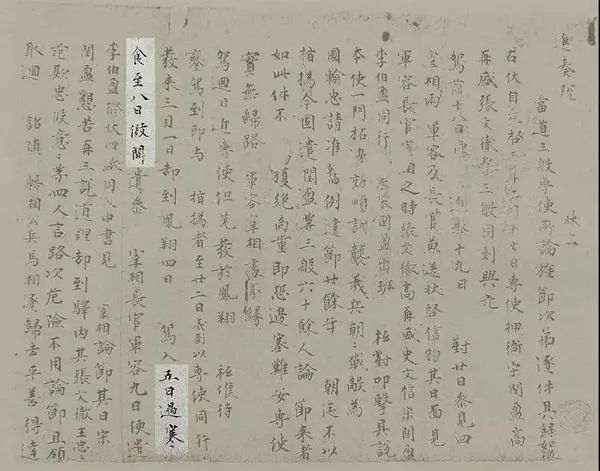 進奏院　狀上
當道三般專使所論旌節次第逐件具錄如後
右伏自光啟三年二月十七日專使押衙宋閏盈高
再盛張文徹等三般同到興元
駕前十八日使進奉十九日對廿日參見四
宰相兩軍容及長官兼送狀啟信物其日面見
軍容長官宰相之時張文徹高再盛史文信宋閏盈
李伯盈同行　宋閏盈出班祗對叩擊具說
本使一門拓邊効順訓襲義兵朝朝戰敵為
國輸忠請准舊例建節廿餘年朝廷不以
指撝今固遣閏盈等三般六十餘人論節來者
如此件不獲絕商量即恐邊塞難安專使
實無歸路軍容宰相處分緣
駕迴日近專使但先發於鳳翔祗候待
鑾駕到即與指撝者至廿二日夷則以專使同行
發來三月一日却到鳳翔四日駕入五日遇寒
食至八日假開遣參宰相長官軍容九日便遣
李伯盈修狀四紙同入中書見宰相論節其日宋
閏盈懇苦再三說道理却到驛內其張文徹王忠忠
范欺忠段意意等四人言路次危險不用論節且領
取迴詔隨韓相公兵馬相逐歸去平善得達